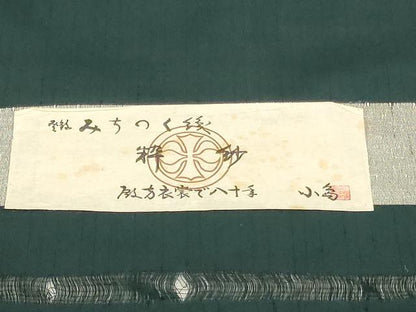 登録 みちのく銭
粋 紗
殿方衣裳で八十年 小島